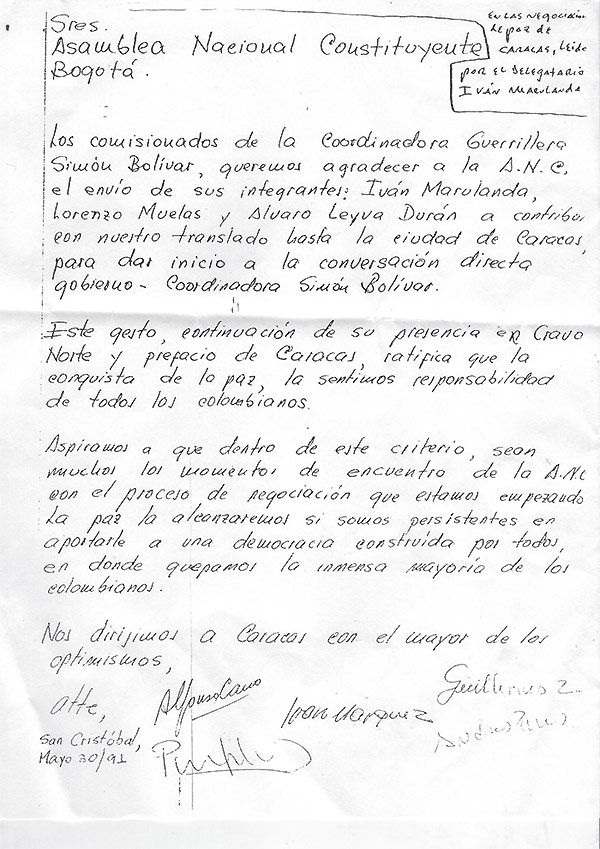 Sres.
Asamblea Nacional Constituyente
Bogotá.
EN LAS NEGOCIACION
DE PAZ DE
CARACAS, LEIDO
POR EL DELEGATARIO
IVÁN MARULANDA
Los comisionados de la Coordinadora Guerrillera
Simón Bolívar, queremos agradecer a la A.N.C.
el envío de sus integrantes: Iván Marulanda,
Lorenzo Muelas y Alvaro Leyva Durán a contribuir
con nuestro translado hasta la ciudad de Caracas,
para dar inicio a la conversación directa
gobierno - Coordinadora Simón Bolívar.
Este gesto, continuación de su presencia en Cravo
Norte y prefacio de Caracas, ratifica que la
conquista de la paz, la sentimos responsabilidad
de todos los colombianos.
Aspiramos a que dentro de este criterio, sean
muchos los momentos de encuentro de la A.N.C
con el proceso de negociación que estamos empezando
La paz la alcanzaremos si somos persistentes en
aportarle a una democracia construida por todos,
en donde quepamos la inmensa mayoría de los
colombianos.
Nos dirijimos a Caracas con el mayor de los
optimismos,
atte,
Alfonso Cano
Ivan Marquez
Guillermo Z.
San Cristóbal,
Mayo 30/91